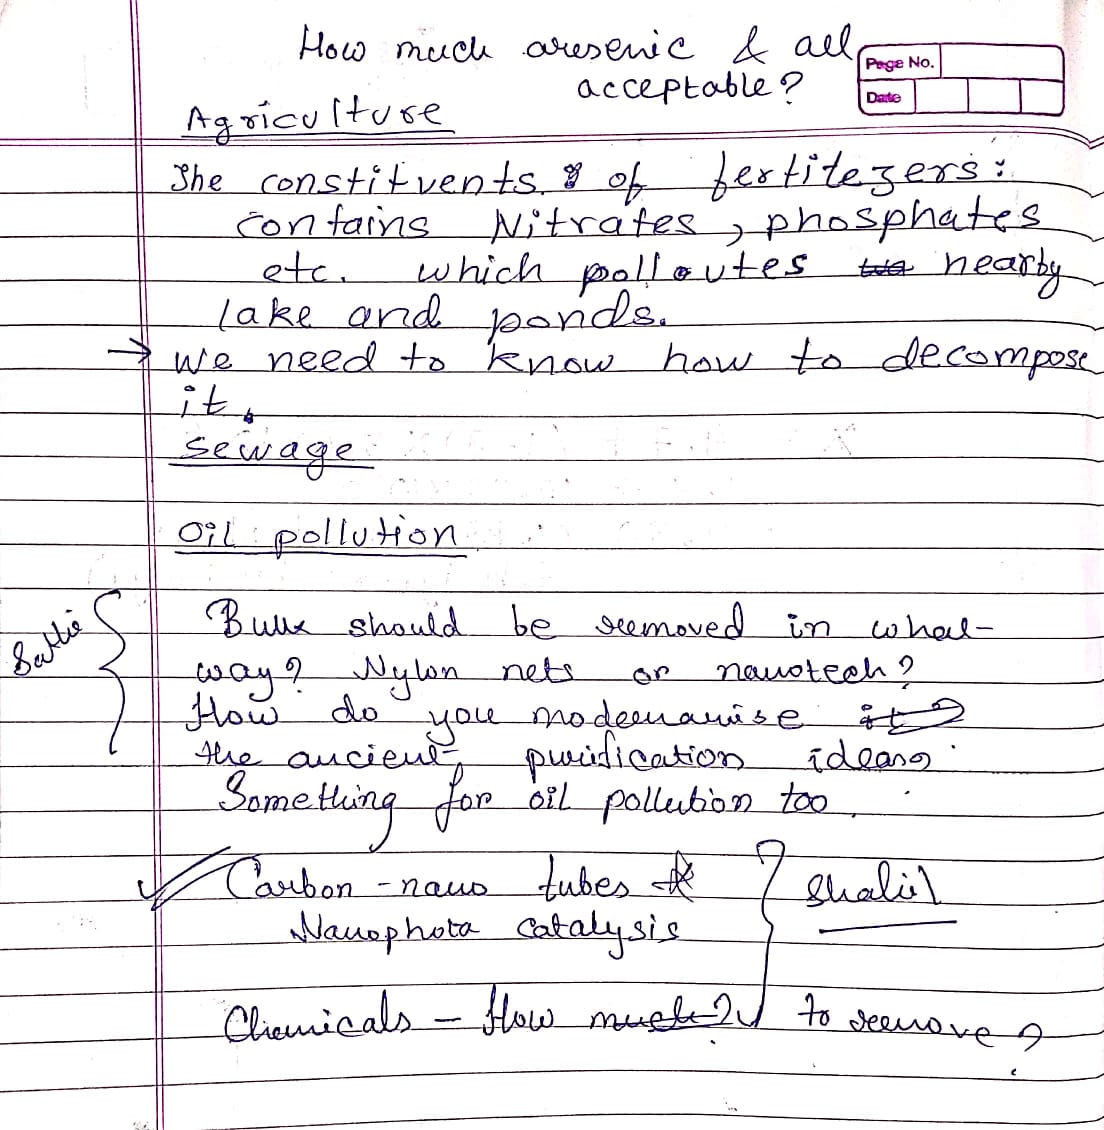 How much aresenic & all
acceptable?
Page No.
Date
Agriculture
The constituents of fertitezers:
contains Nitrates, phosphates
etc. which pollutes nearby
lake and ponds.
→ We need to know how to decompose
it.
Sewage
Oil pollution
Bulk should be removed in what
way? Nylon nets or nanotech?
How do you modernanise it?
the ancient purification ideas
Something for oil pollution too.
Carbon-nano tubes
Nanophoto catalysis
Shalil
Chemicals - How much? to remove?